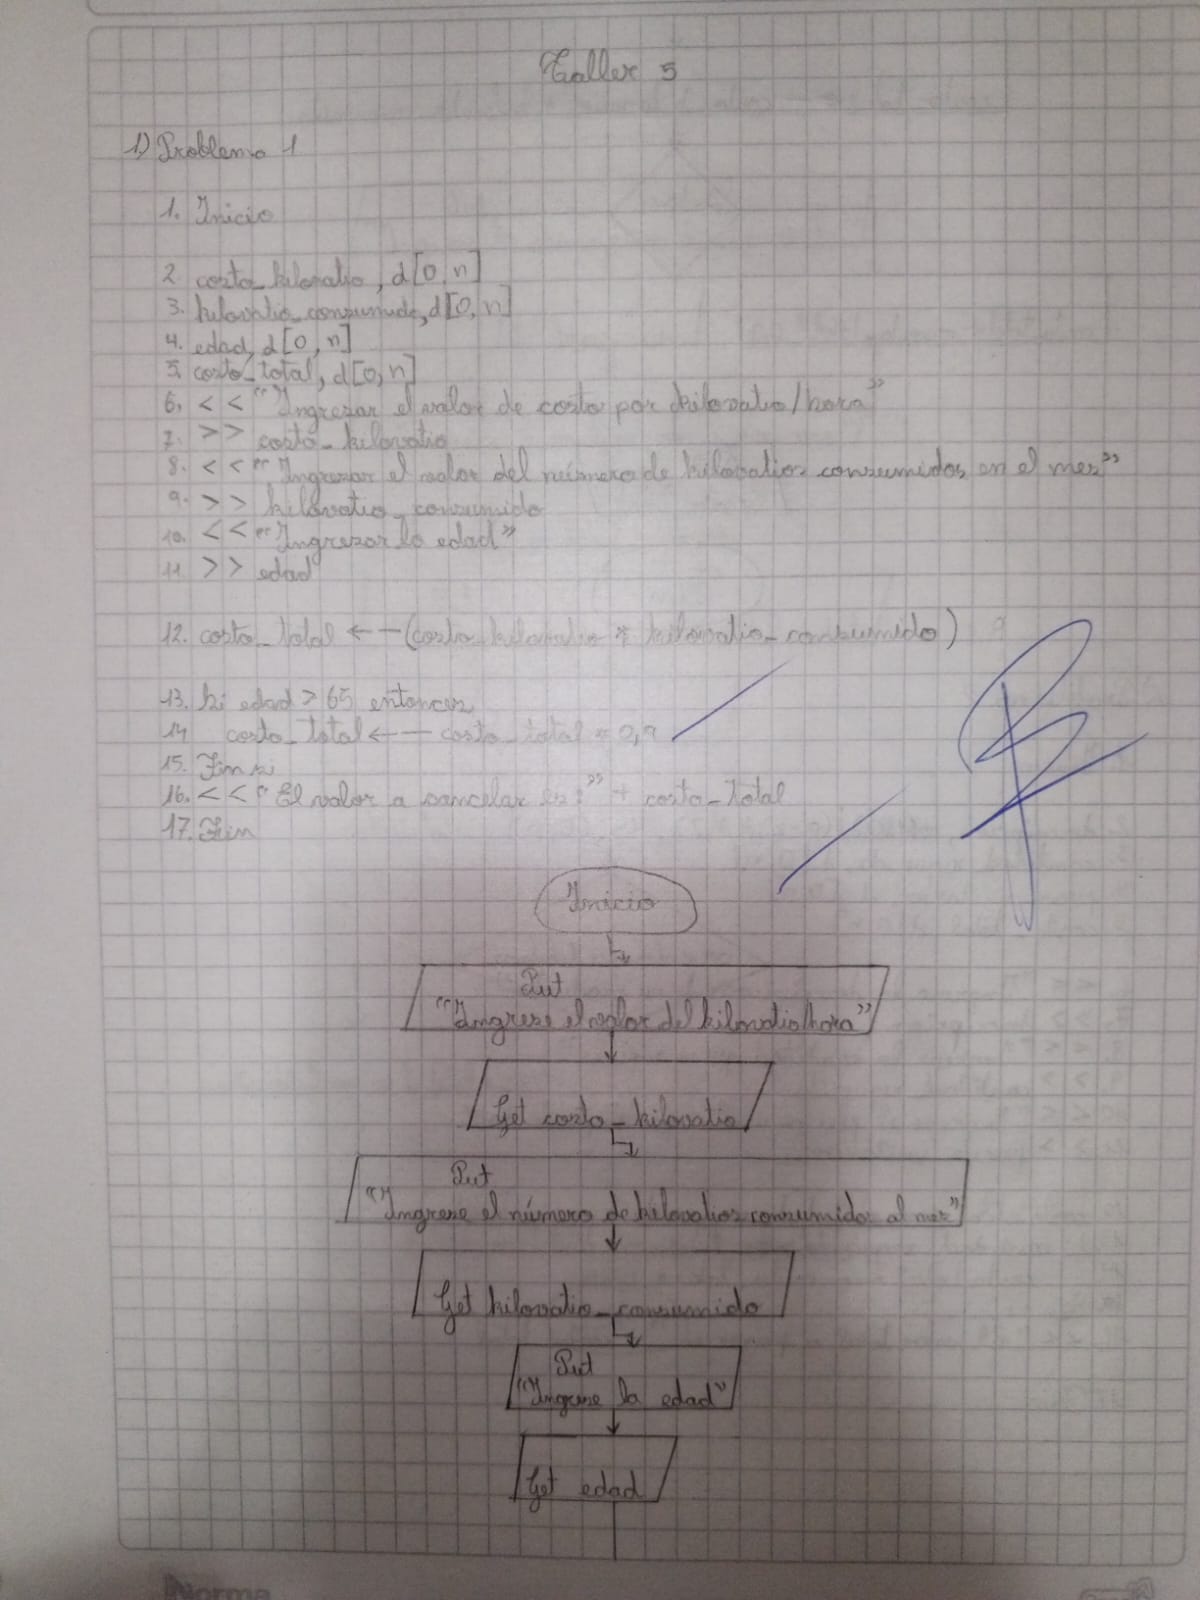 Taller 5
1) Problema 1
1. Inicio
2. costo_kilovatio, d[0, n]
3. kilovatio_consumido, d[0, n]
4. edad, d[0, n]
5. costo_total, d[0, n]
6. << "Ingresar el valor de costo por kilovatio/hora"
7. >> costo_kilovatio
8. << "Ingresar el valor del número de kilovatios consumidos en el mes"
9. >> kilovatio_consumido
10. << "Ingresar la edad"
11. >> edad
12. costo_total ←— (costo_kilovatio * kilovatio_consumido)
13. Si edad > 65 entonces
14. costo_total ←— costo_total * 0,9
15. Fin si
16. << "El valor a cancelar es:" + costo_total
17. Fin
Inicio
Put
"Ingrese el valor del kilovatio/hora"
Get costo_kilovatio
Put
"Ingrese el número de kilovatios consumidos al mes"
Get kilovatio_consumido
Put
"Ingrese la edad"
Get edad
Norma